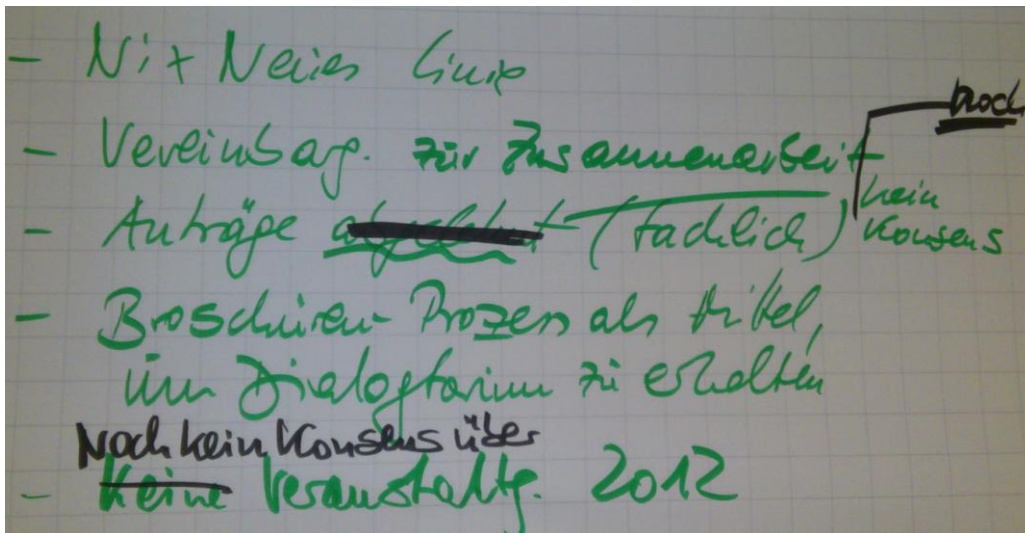 - Nix Neues Linie
noch
- Vereinbarg. zur Zusammenarbeit
- Anträge abgelehnt (fachlich) kein Konsens
- Broschüren-Prozess als Mittel,
um Dialogforum zu erhalten
Noch kein Konsens über
- Keine Veranstaltg. 2012